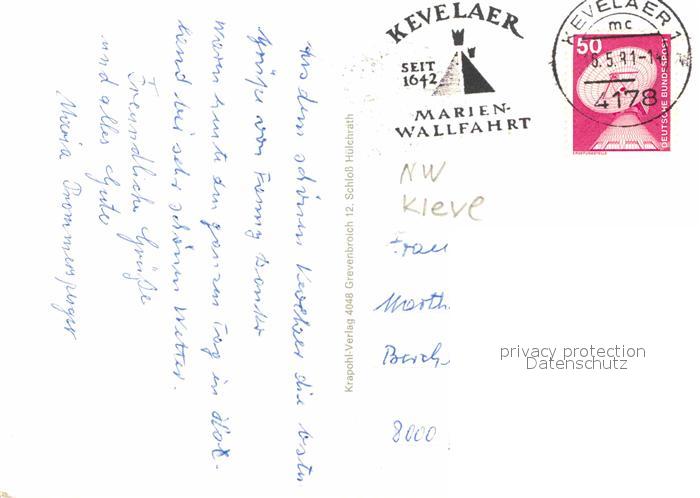 Aus dem schönen Kevelaer die besten
Grüße von Fanny
Waren heute den ganzen Tag in
bei sehr schönem Wetter.
Freundliche Grüße
und alles Gute
Maria
Krapohl-Verlag 4048 Grevenbroich 12, Schloß Hülchrath
KEVELAER
SEIT
1642
MARIEN-
WALLFAHRT
KEVELAER 1
mc
6.5.81-1
4178
50
DEUTSCHE BUNDESPOST
ERDFUNKSTELLE
NW
Kleve
Frau
Marth.
8000
privacy protection
Datenschutz